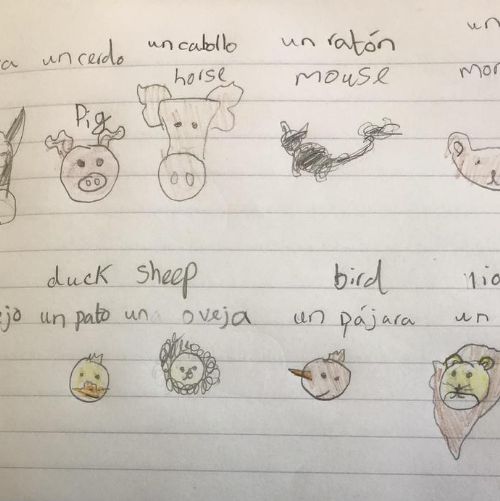 un
a un cerdo un cabollo un ratón
horse mouse mon
Pig
duck sheep bird lio
ejo un pato una oveja un pájara un